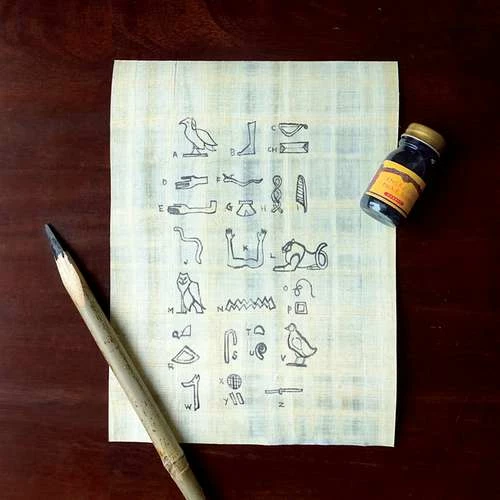 A B C
CH
D F
E G H
K L
O
M N P
Q T
R S U V
X
W Y Z